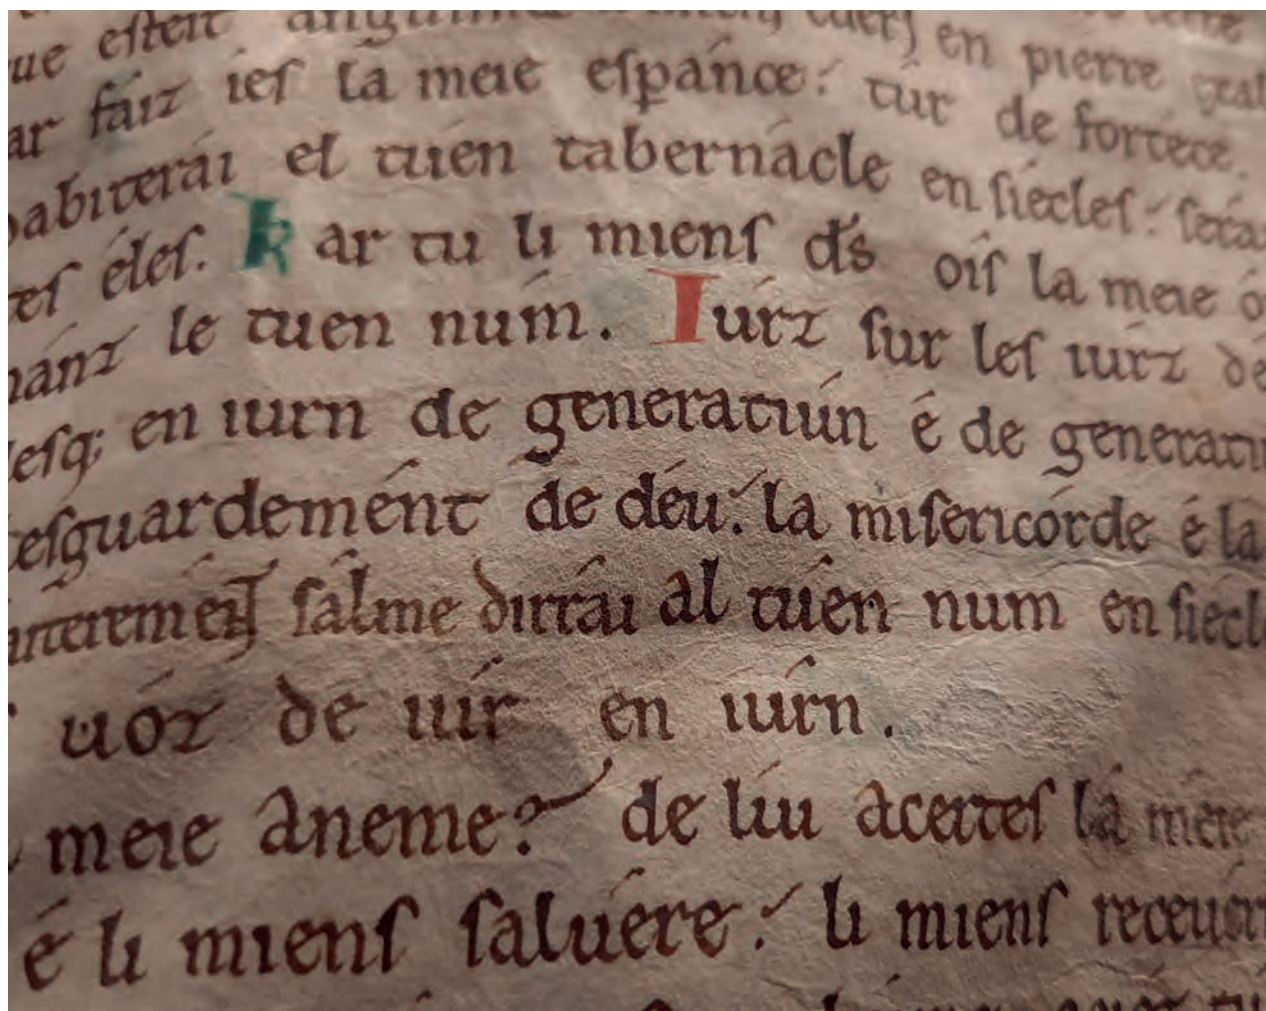 ue esteit en pierre
ar faiz ies la meie espánce: túr de fortece.
abiterái el tuén tabernácle en siécles: será
es éles. Kar tu li miens d's oís la meie ó
ánz le tuen núm. Iúrz sur les iurz de
esq; en iurn de generatiún é de generatiu
esguardemént de déu: la misericórde é la
salme dirrái al tuén num en siecl
uóz de iúr en iúrn.
meie aneme? de lúi acertes la meie
é li miens saluére: li miens receuór